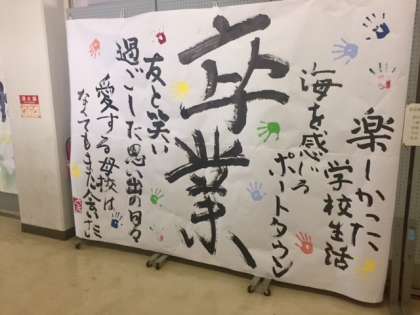 楽しかった
学校生活
海を感じる
ポートタウン
卒業
友と笑い
過ごした思い出の日々
愛する母校は
なくてもまた会いたい